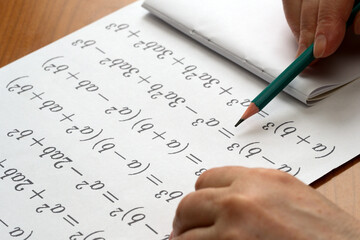 b)² = a² + 2ab +
(a − b)² = a² − 2ab + b²
b³ = (a − b)(a² + ab + b²)
b³ = (a + b)(a² − ab + b²)
(a − b)³ = a³ − 3a²b + 3ab² − b³
(a + b)³ = a³ + 3a²b + 3ab² +